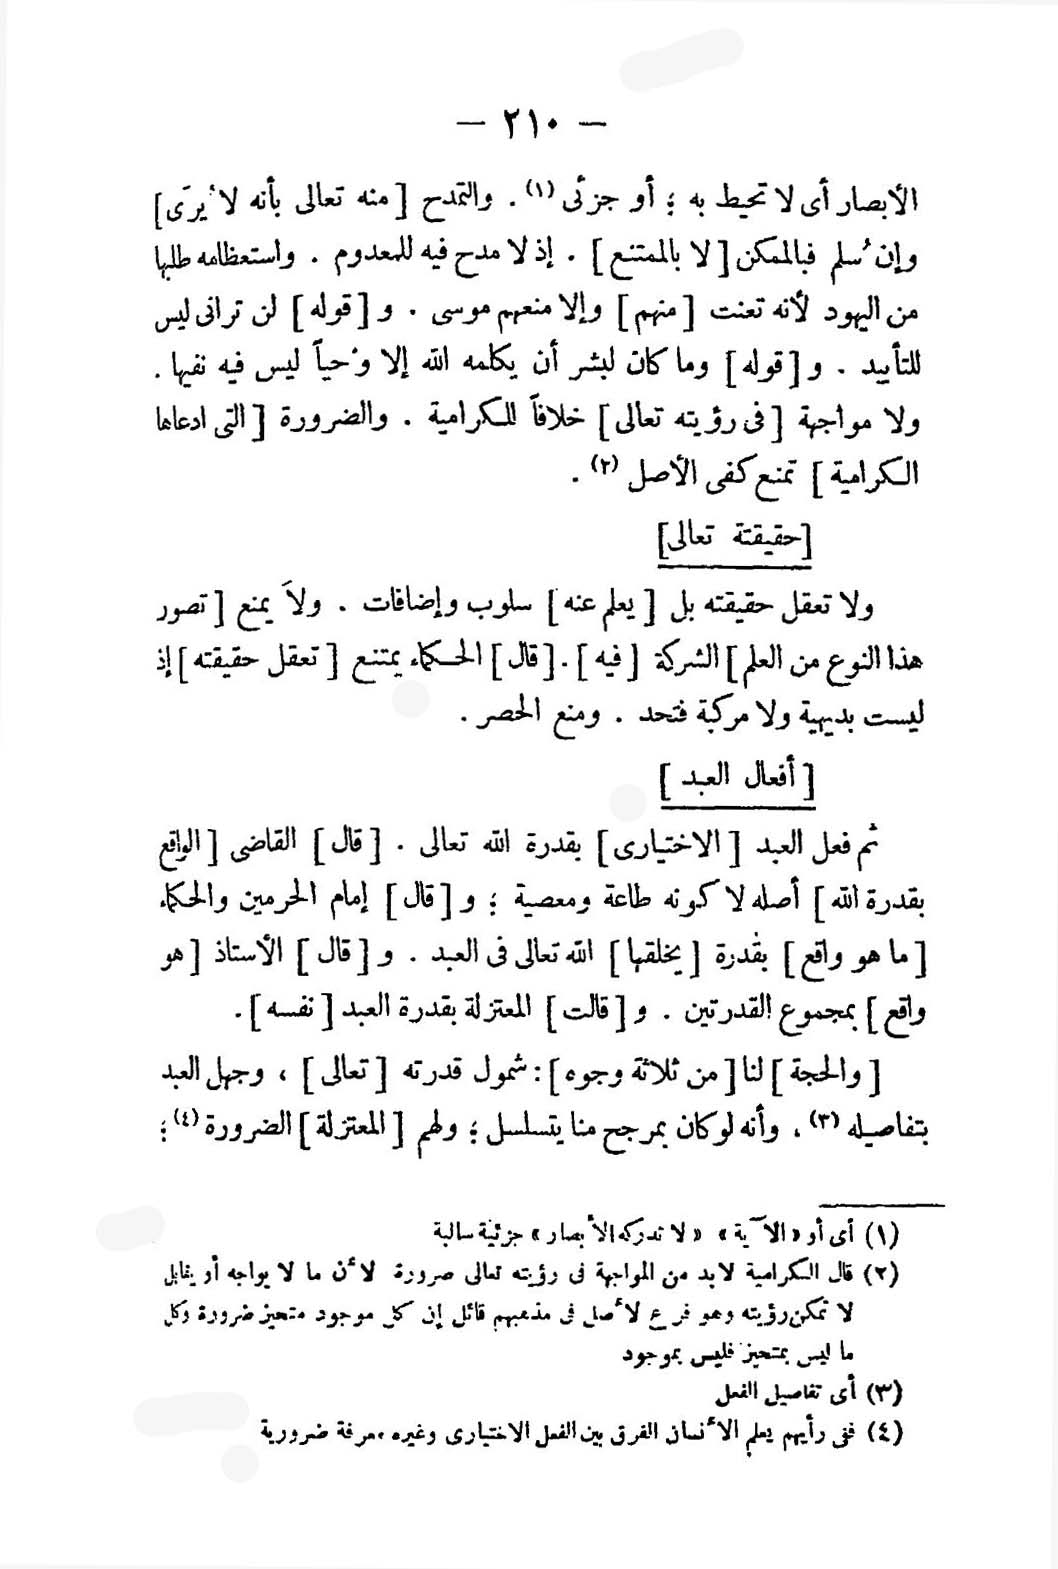 — ٢١٠ —
الأبصار أى لا تحيط به ؛ أو جزئى (١) . والتمدح [ منه تعالى بأنه لا يُرَى ]
وإن سُلم فبالممكن [ لا بالممتنع ] . إذ لا مدح فيه للمعدوم . واستعظامه طلبها
من اليهود لأنه تعنت [ منهم ] وإلا منعهم موسى . و [ قوله ] لن ترانى ليس
للتأبيد . و [ قوله ] وما كان لبشر أن يكلمه الله إلا وحْياً ليس فيه نفيها .
ولا مواجهة [ فى رؤيته تعالى ] خلافاً للكرامية . والضرورة [ التى ادعاها
الكرامية ] تمنع كفى الأصل (٢) .
[حقيقتة تعالى]
ولا تعقل حقيقته بل [ يعلم عنه ] سلوب وإضافات . ولاَ يمنع [ تصور
هذا النوع من العلم ] الشركة [ فيه ] . [ قال ] الحكماء يمتنع [ تعقل حقيقته ] إذ
ليست بديهية ولا مركبة فتحد . ومنع الحصر .
[ أفعال العبد ]
ثم فعل العبد [ الاختيارى ] بقدرة الله تعالى . [ قال ] القاضى [ الواقع
بقدرة الله ] أصله لا كونه طاعة ومعصية ؛ و [ قال ] إمام الحرمين والحكماء
[ ما هو واقع ] بقدرة [ يخلقها ] الله تعالى فى العبد . و [ قال ] الأستاذ [ هو
واقع ] بمجموع القدرتين . و [ قالت ] المعتزلة بقدرة العبد [ نفسه ] .
[ والحجة ] لنا [ من ثلاثة وجوه ] : شمول قدرته [ تعالى ] ، وجهل العبد
بتفاصيله (٣) ، وأنه لو كان بمرجح منا يتسلسل ؛ ولهم [ المعتزلة ] الضرورة (٤) ؛
(١) أى أو « الآية » « لا تدركه الأبصار » جزئية سالبة
(٢) قال الكرامية لابد من المواجهة فى رؤيته تعالى ضرورة لأن ما لا يواجه أو يقابل
لا تمكن رؤيته وهو فرع لأصل فى مذهبهم قائل إن كل موجود متحيز ضرورة وكل
ما ليس بمتحيز فليس بموجود
(٣) أى تفاصيل الفعل
(٤) ففى رأيهم يعلم الأنسان الفرق بين الفعل الاختيارى وغيره معرفة ضرورية